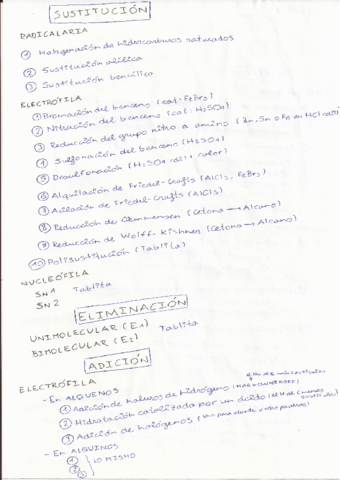 SUSTITUCIÓN
RADICALARIA
① Halogenación de hidrocarburos saturados
② Sustitución alílica
③ Sustitución bencílica
ELECTRÓFILA
① Bromación del benceno (cat: FeBr3)
② Nitración del benceno (cat: H2SO4)
③ Reducción del grupo nitro a amino (Zn, Sn o Fe en HCl
④ Sulfonación del benceno (H2SO4)
⑤ Desulfonación (H2SO4 + calor)
⑥ Alquilación de Friedel-Crafts (AlCl3, FeBr3)
⑦ Acilación de Friedel-Crafts (AlCl3)
⑧ Reducción de Clemmensen (Cetona → Alcano)
⑨ Reducción de Wolff-Kishner (Cetona → Alcano)
⑩ Polisustitución (Tablita)
NUCLEÓFILA
SN1 Tablita
SN2
ELIMINACIÓN
UNIMOLECULAR (E1) Tablita
BIMOLECULAR (E2)
ADICIÓN
ELECTRÓFILA
- En ALQUENOS
① Adición de haluros de hidrógeno (MARKOVNIKOFF)
② Hidratación catalizada por un ácido
③ Adición de halógenos
- En ALQUINOS
① LO MISMO
②
③